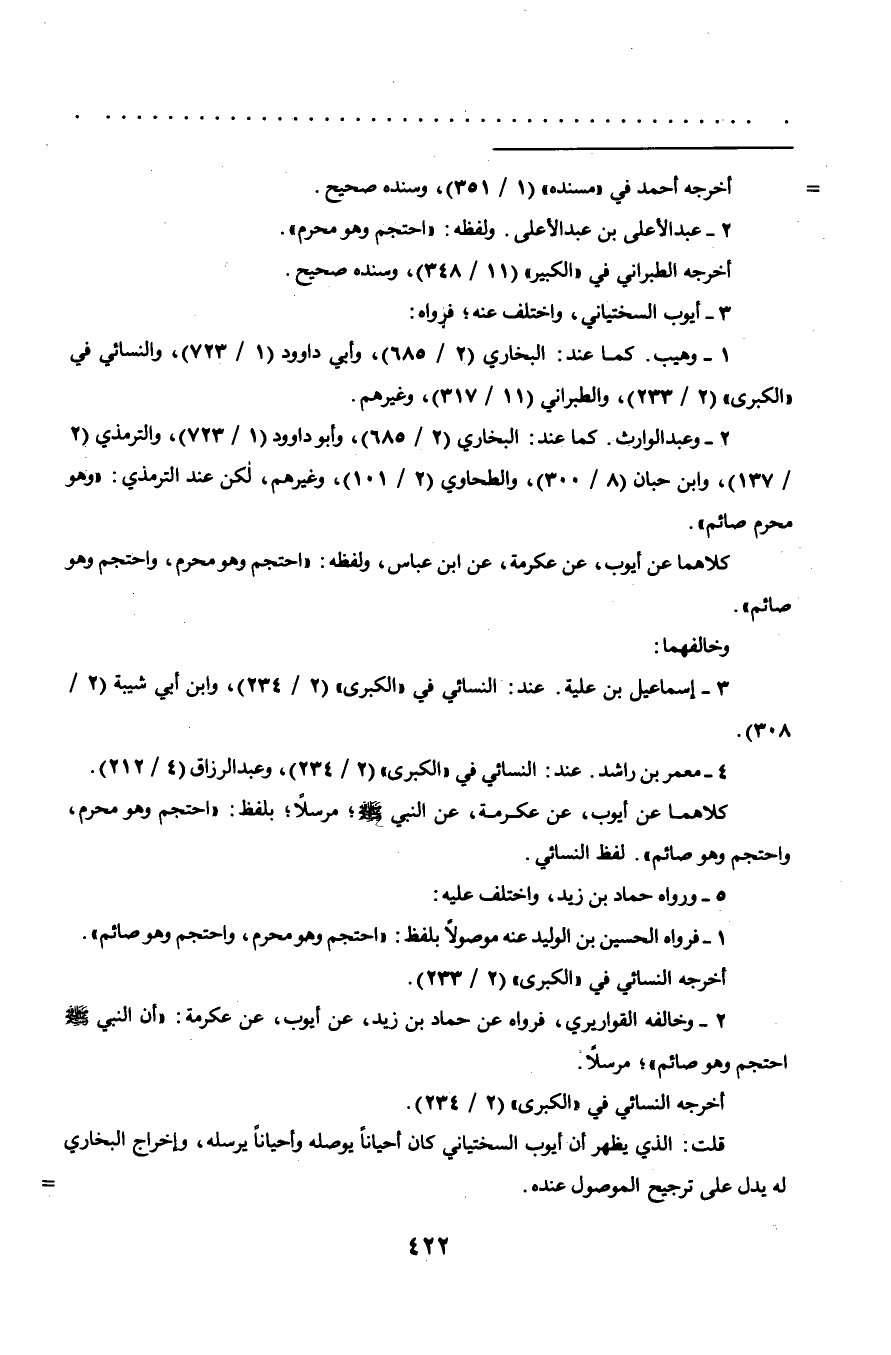 . . . . . . . . . . . . . . . . . . . . . . . . . . . . . . . . . . . . . . . . . . .
= أخرجه أحمد في «مسنده» (١ / ٣٥١)، وسنده صحيح.
٢ ـ عبدالأعلى بن عبدالأعلى. ولفظه: «احتجم وهو محرم».
أخرجه الطبراني في «الكبير» (١١ / ٣٤٨)، وسنده صحيح.
٣ ـ أيوب السختياني، واختلف عنه؛ فرواه:
١ ـ وهيب. كما عند: البخاري (٢ / ٦٨٥)، وأبي داوود (١ / ٧٢٣)، والنسائي في
«الكبرى» (٢ / ٢٣٣)، والطبراني (١١ / ٣١٧)، وغيرهم.
٢ ـ وعبدالوارث. كما عند: البخاري (٢ / ٦٨٥)، وأبو داوود (١ / ٧٢٣)، والترمذي (٢
/ ١٣٧)، وابن حبان (٨ / ٣٠٠)، والطحاوي (٢ / ١٠١)، وغيرهم، لٰكن عند الترمذي: «وهو
محرم صائم».
كلاهما عن أيوب، عن عكرمة، عن ابن عباس، ولفظه: «احتجم وهو محرم، واحتجم وهو
صائم».
وخالفهما:
٣ ـ إسماعيل بن علية. عند: النسائي في «الكبرى» (٢ / ٢٣٤)، وابن أبي شيبة (٢ /
٣٠٨).
٤ ـ معمر بن راشد. عند: النسائي في «الكبرى» (٢ / ٢٣٤)، وعبدالرزاق (٤ / ٢١٢).
كلاهما عن أيوب، عن عكرمة، عن النبي ﷺ؛ مرسلاً؛ بلفظ: «احتجم وهو محرم،
واحتجم وهو صائم». لفظ النسائي.
٥ ـ ورواه حماد بن زيد، واختلف عليه:
١ ـ فرواه الحسين بن الوليد عنه موصولاً بلفظ: «احتجم وهو محرم، واحتجم وهو صائم».
أخرجه النسائي في «الكبرى» (٢ / ٢٣٣).
٢ ـ وخالفه القواريري، فرواه عن حماد بن زيد، عن أيوب، عن عكرمة: «أن النبي ﷺ
احتجم وهو صائم»؛ مرسلاً.
أخرجه النسائي في «الكبرى» (٢ / ٢٣٤).
قلت: الذي يظهر أن أيوب السختياني كان أحياناً يوصله وأحياناً يرسله، وإخراج البخاري
له يدل على ترجيح الموصول عنده. =
٤٢٢